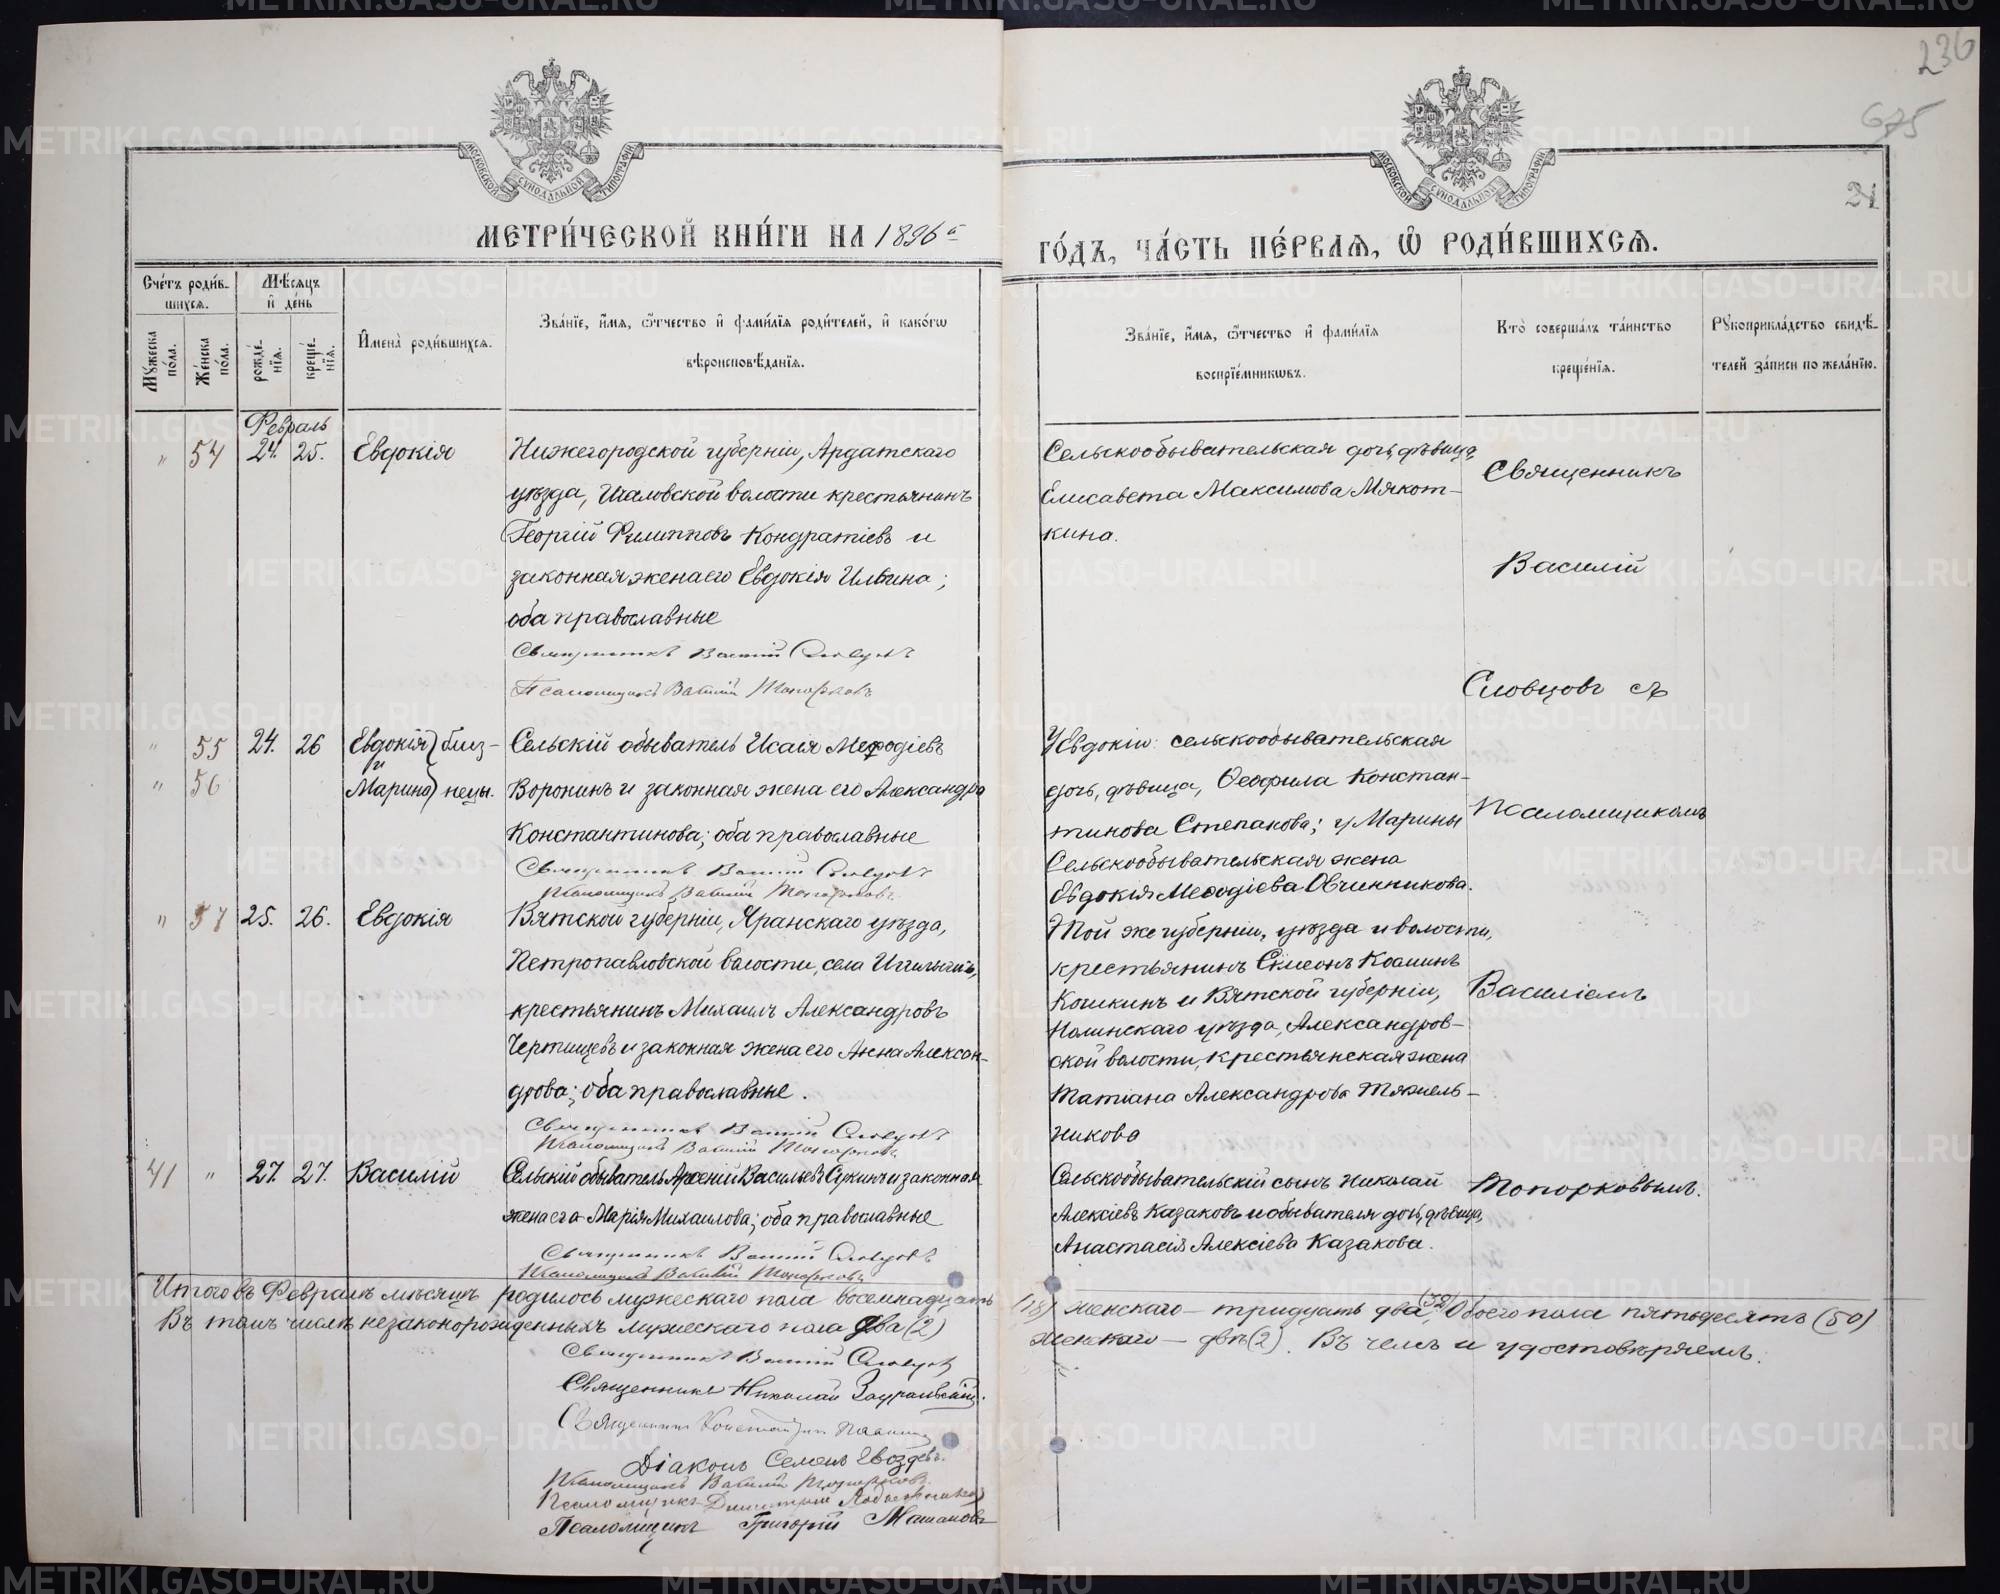 236
675
21
МОСКОВСКОЙ СѴНОДАЛЬНОЙ ТИПОГРАФІИ
МОСКОВСКОЙ СѴНОДАЛЬНОЙ ТИПОГРАФІИ
МЕТРИ́ЧЕСКОЙ КНИ́ГИ НА 1896й
ГО́ДЪ, ЧА́СТЬ ПЕ́РВАѦ, Ѡ҆ РОДИ́ВШИХСѦ.
Сче́тъ роди́в-
шихсѧ.
Мѣ́сѧцъ
и҆ де́нь
Мꙋ́жеска
по́ла.
Же́нска
по́ла.
рожде́-
нїѧ.
креще́-
нїѧ.
И҆мена̀ роди́вшихсѧ.
Зва́нїе, и҆́мѧ, ѻ҆́тчество и҆ фами́лїѧ роди́телей, и҆ како́гѡ
вѣроисповѣ́данїѧ.
Зва́нїе, и҆́мѧ, ѻ҆́тчество и҆ фами́лїѧ
воспрїе́мникѡвъ.
Кто̀ соверша́лъ та́инство
креще́нїѧ.
Рꙋкоприкла́дство свидѣ́-
телей за́писи по жела́нїю.
Февраль
" 54 24. 25. Евдокія
Нижегородской губерніи, Ардатскаго
уѣзда, волости крестьянинъ
Георгій Филипповъ Кондратіевъ и
законная жена его Евдокія Ильина;
оба православные
Священникъ Василій Словцовъ
Псаломщикъ Василій Топорковъ
Сельскообывательская дочь, дѣвица,
Елисавета Максимова Мякот-
кина.
Священникъ
Василій
Словцовъ съ
" 55 24. 26 Евдокія близ-
и
" 56 Марина нецы.
Сельскій обыватель Исаія Меѳодіевъ
Воронинъ и законная жена его Александра
Константинова; оба православные
Священникъ Василій Словцовъ
Псаломщикъ Василій Топорковъ
У Евдокіи: сельскообывательская
дочь, дѣвица, Ѳеофила Констан-
тинова Степанова; у Марины
Сельскообывательская жена
Евдокія Меѳодіева Овчинникова.
Псаломщикомъ
" 57 25. 26. Евдокія
Вятской губерніи, Яранскаго уѣзда,
Петропавловской волости, села
крестьянинъ Михаилъ Александровъ
Чертищевъ и законная жена его Анна Алексан-
дрова; оба православные.
Священникъ Василій Словцовъ
Псаломщикъ Василій Топорковъ
Той же губерніи, уѣзда и волости,
крестьянинъ Симеонъ
Кошкинъ и Вятской губерніи,
Нолинскаго уѣзда, Александров-
ской волости, крестьянская жена
Татіана Александрова Тяжель-
никова
Василіемъ
41 " 27. 27. Василій
Сельскій обыватель Арсеній Васильевъ и законная
жена его Марія Михаилова; оба православные
Священникъ Василій Словцовъ
Псаломщикъ Василій Топорковъ
Сельскообывательскій сынъ Николай
Алексіевъ Казаковъ и обывателя дочь, дѣвица,
Анастасія Алексіева Казакова.
Топорковымъ.
Итого въ Февралѣ мѣсяцѣ родилось мужескаго пола восемнадцать
(18) женскаго — тридцать два (32), Обоего пола пятьдесятъ (50)
Въ томъ числѣ незаконорожденныхъ мужескаго пола два (2)
женскаго — двѣ (2). Въ чемъ и удостовѣряемъ.
Священникъ Василій Словцовъ
Священникъ Николай Зауральскій.
Священникъ Константинъ
Діаконъ Семенъ Гвоздевъ.
Псаломщикъ Василій Топорковъ
Псаломщикъ Димитрій
Псаломщикъ Григорій Машановъ
METRIKI.GASO-URAL.RU